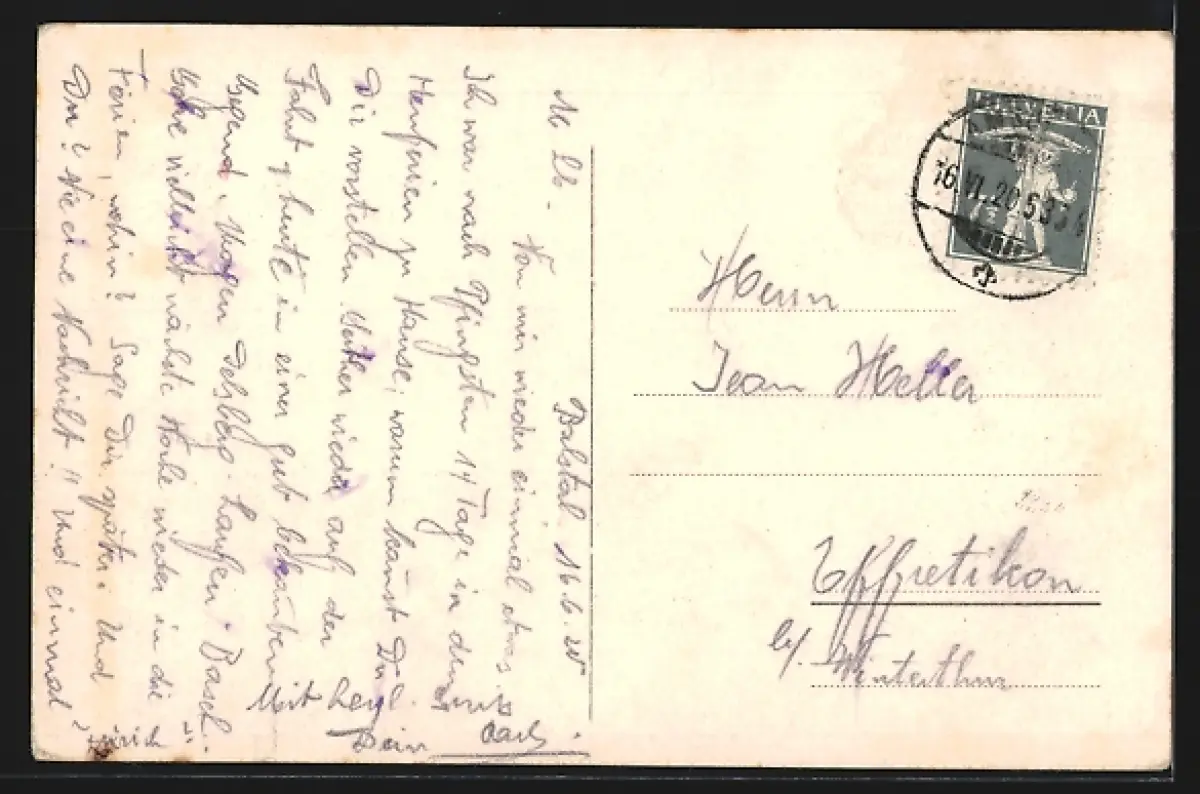 Balstal. 16.6.20
M. Lb.
Von mir wieder einmal etwas.
Ich war nach Pfingsten 14 Tage in den
Heuferien zu Hause; warum kannst Du
Dir vorstellen. Seither wieder auf der
Fahrt & heute in einer gut bekannten
Gegend, Delsberg. Laufen. Basel.
Gehe vielleicht nächste Woche wieder in die
Ferien, wohin? Sage Dir später. Und
Du? Nie eine Nachricht!! Und einmal
Zürich?
Mit herzl. Gruss
Dein
HELVETIA
16.VI.20
Herrn
Jean Heller
Effretikon
b/. Winterthur